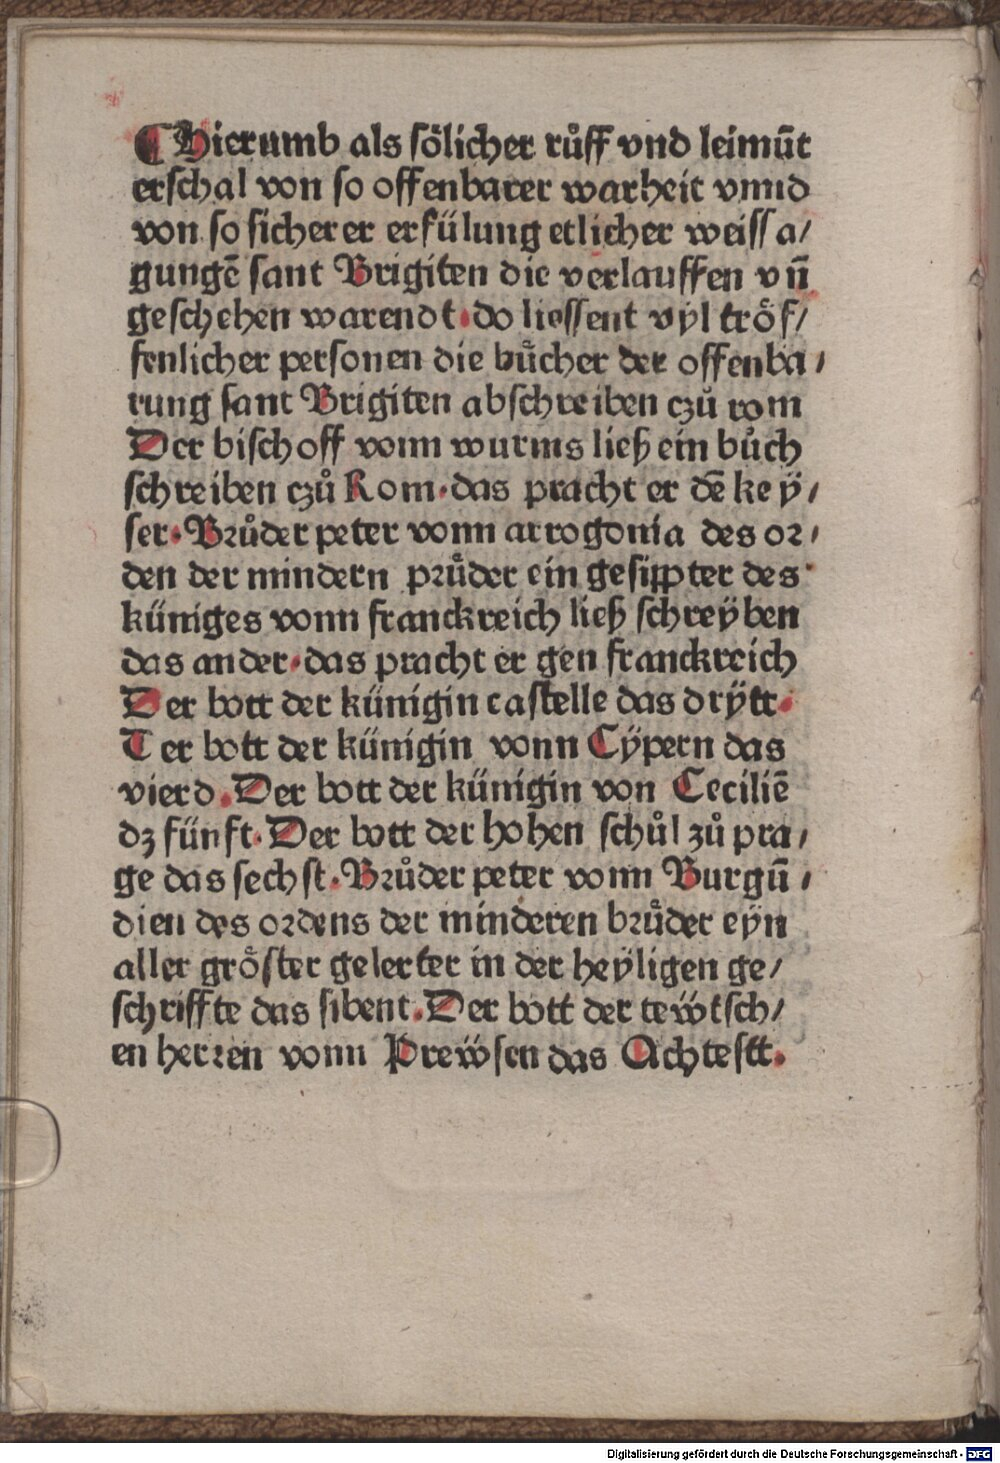 ¶ Hierumb als sölicher růff vnd leimūt
erschal von so offenbarer warheit vnnd
von so sicherer erfülung etlicher weissa/
gungē sant Brigiten die verlauffen vn̄
geschehen warendt·do liessent vyl tröf/
fenlicher personen die bu̎cher der offenba/
rung sant Brigiten abschreiben czů rom
Der bischoff vonn wurms ließ ein bůch
schreiben czů Rom·das pracht er dē keÿ/
ser·Brůder peter vonn arrogonia des or/
den der mindern průder ein gesippter des
küniges vonn franckreich ließ schreÿben
das ander·das pracht er gen franckreich
Der bott der künigin castelle das drÿtt·
Ter bott der künigin vonn Cÿpern das
vierd·Der bott der künigin von Ceciliē
dz fünft·Der bott der hohen schůl zů pra/
ge das sechst·Brůder peter vonn Burgū/
dien des ordens der minderen brůder eÿn
aller gröster gelerter in der heÿligen ge/
schriffte das sibent·Der bott der tewtsch/
en herren vonn Prewsen das Achtestt·
Digitalisierung gefördert durch die Deutsche Forschungsgemeinschaft - DFG